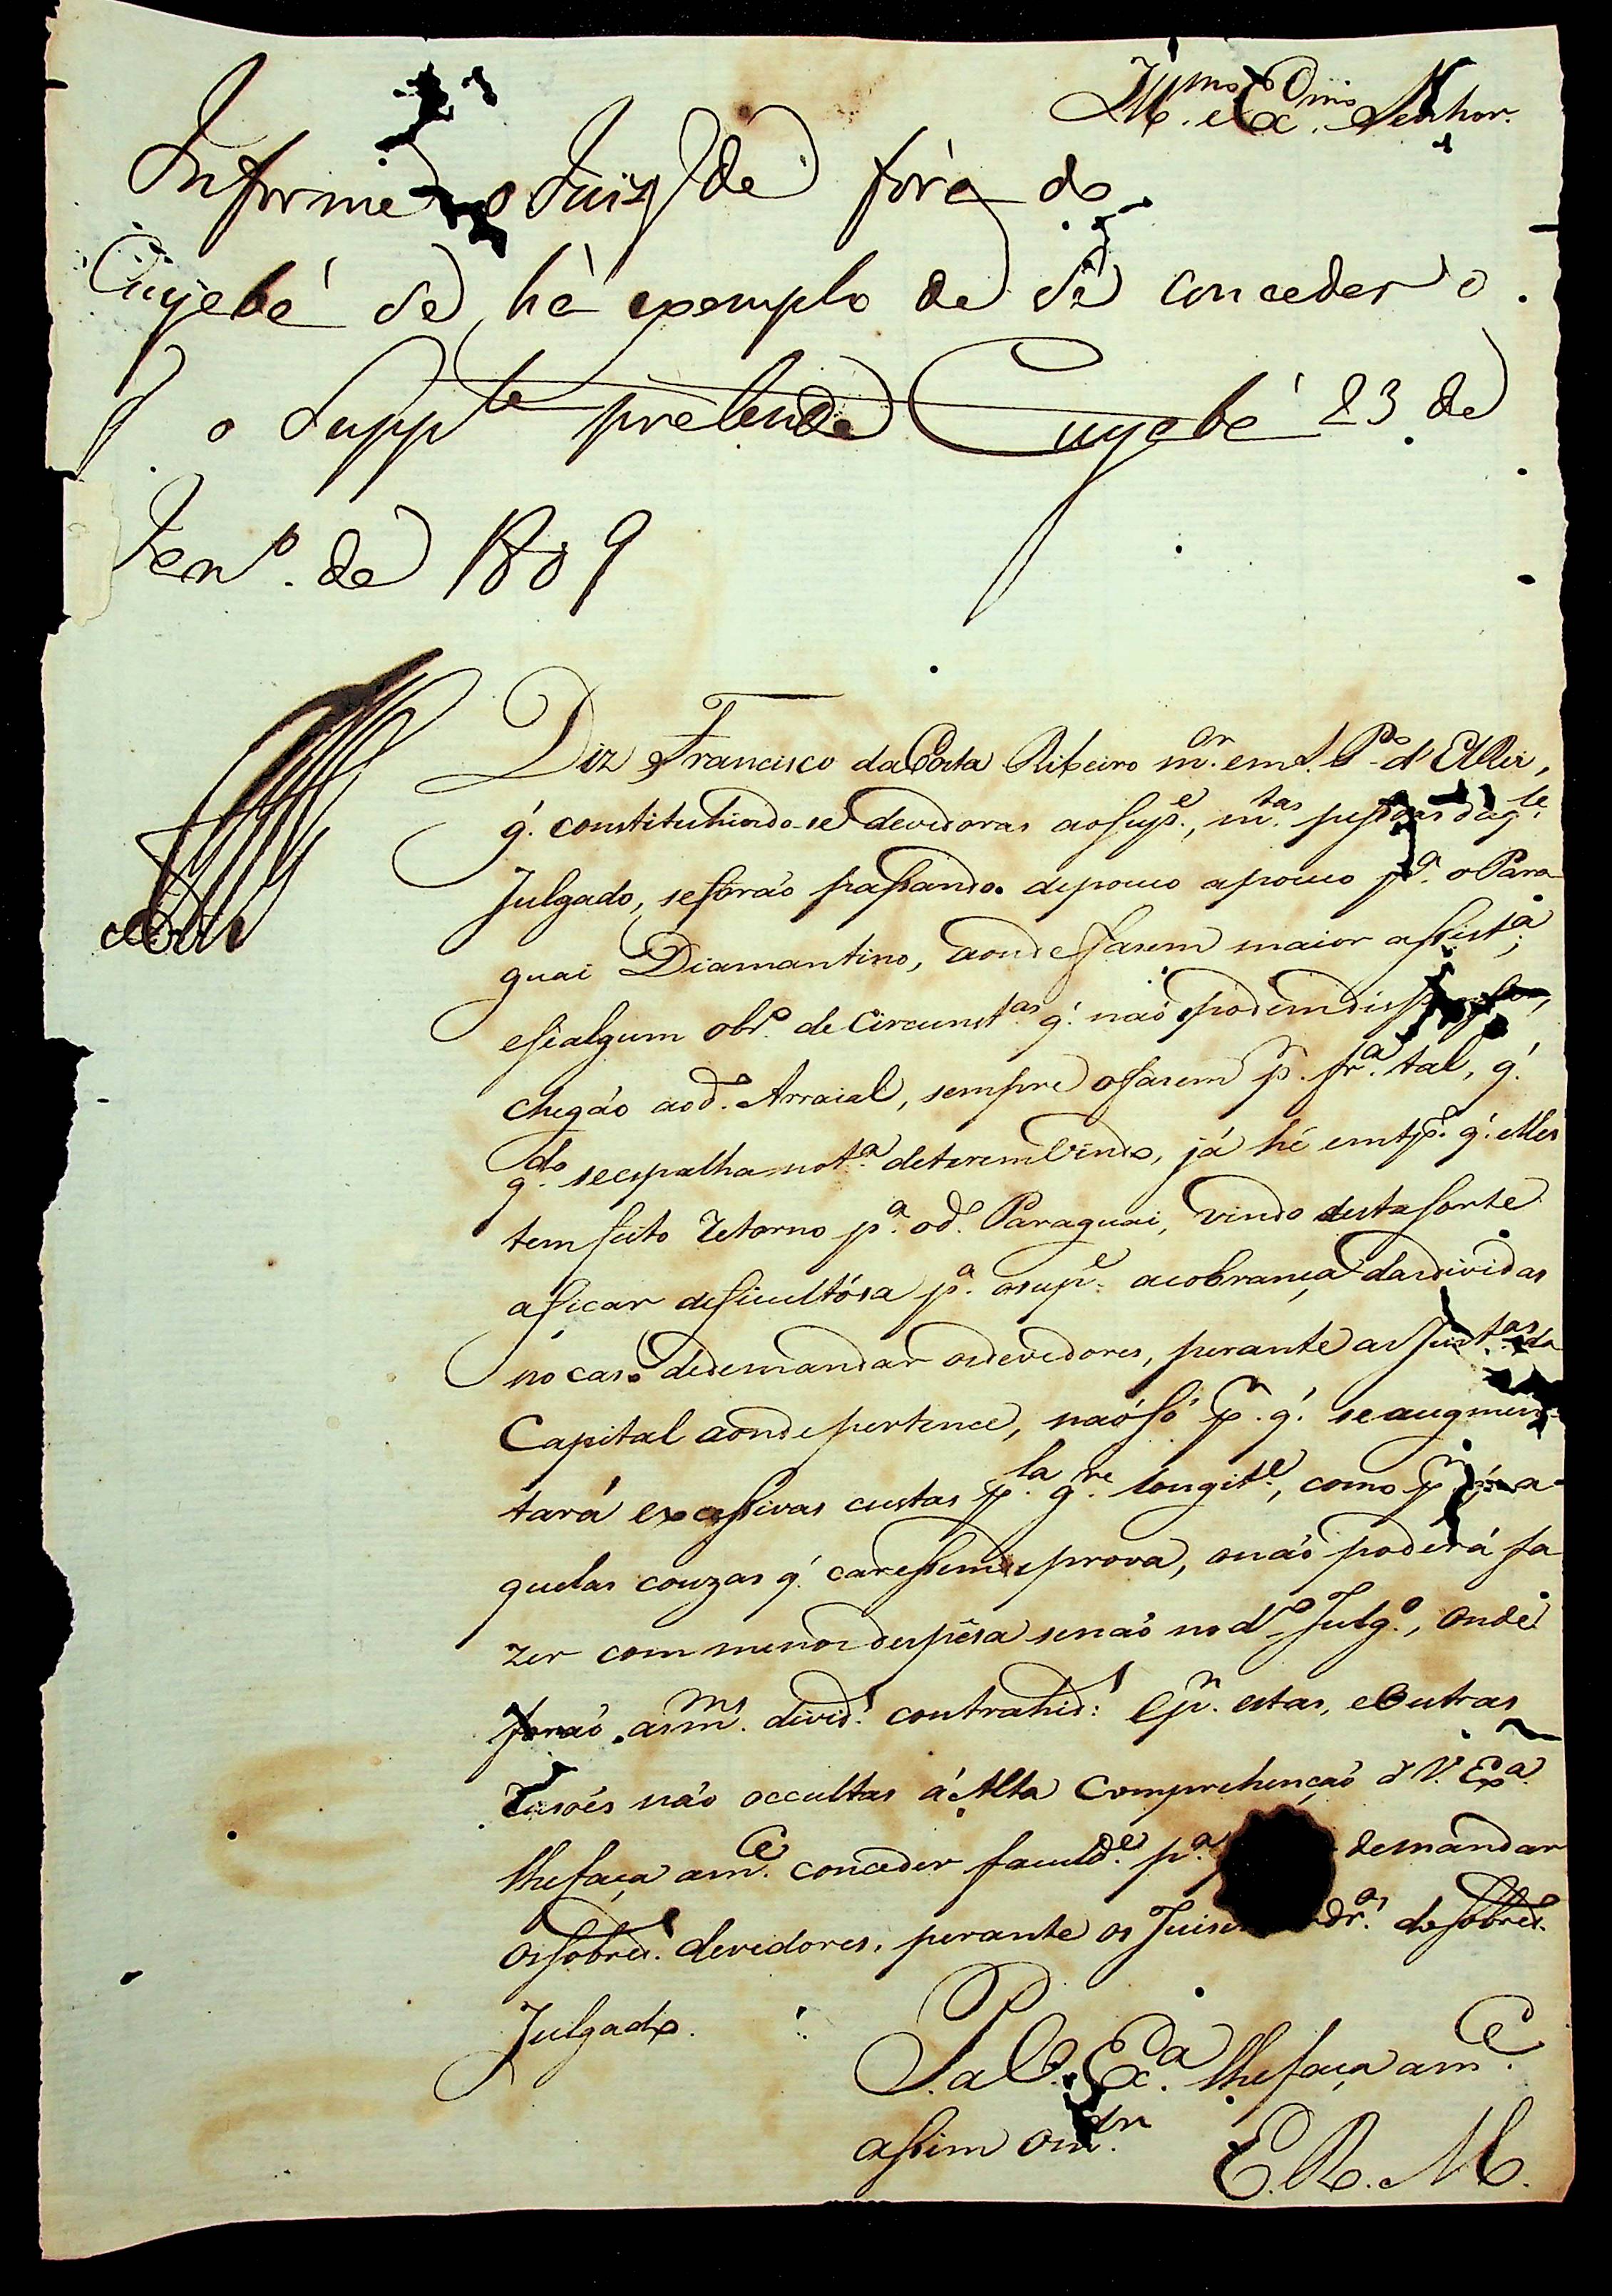 Ill.mo e Ex.mo Senhor.
Informe o Juiz de fóra do
Cuyabá se há exemplo de se conceder o
q o Supp.te pretende Cuyabá 23 de
Jan.o de 1809
Diz Francisco da Costa Ribeiro m.or em S. P.o d'ElRei,
q. constituhindo-se devedoras ao sup.e, m.tas pessoas daq.le
Julgado, se forão passando de pouco a pouco p.a o Para
guai Diamantino, aonde fasem maior assist.a;
e se algum obr.o de Circunst.as q. não podem
chegão ao d.o Arraial, sempre o fasem p.r fr.a tal, q.
q.do se espalha not.a de terem vindo, já hé em tp.o q. elles
tem feito retorno p.a o d.o Paraguai, vindo desta sorte
a ficar deficultósa p.a o sup.e a cobrança das dividas
no caso de demandar os devedores, perante as Just.as da
Capital aonde pertence, não só p.r q. se augmen-
tará excessivas custas p.la g.re longit.e, como p.r q. a-
quelas couzas q. caressem de prova, o não poderá fa
zer com menor despêsa senão no d.o Julg.o, onde
forão as m.mas divid.s contrahid.s E p.r estas, e Outras
rasoés não occultas á Alta Comprehenção d V. Ex.a
lhe faça a m.ce conceder faculd.e p.a demandar
os sobred.s devedores, perante os Juises do sobred.o
Julgado.
P. a V. Ex.a lhe faça a m.ce
assim o m.dr
E. R. M.